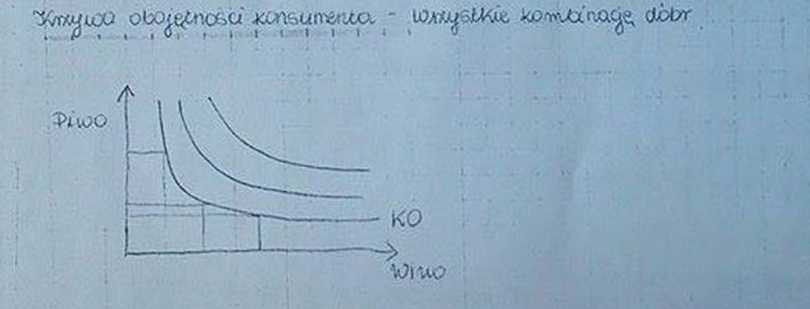 Krzywa obojętności konsumenta - wszystkie kombinację dóbr
Piwo
KO
Wino